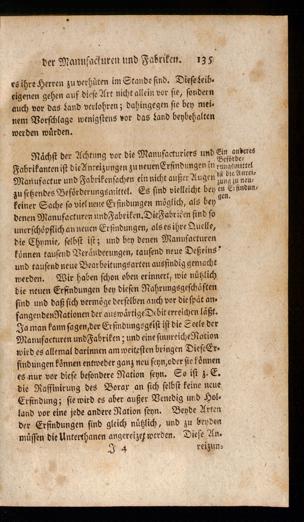 der Manufacturen und Fabriken. 135
es ihre Herren zu verhüten im Stande sind. Diese Leib-
eigenen gehen auf diese Art nicht allein vor sie, sondern
auch vor das Land verlohren; dahingegen sie bey mei-
nem Vorschlage wenigstens vor das Land beybehalten
werden würden.
Nächst der Achtung vor die Manufacturiers und
Fabrikanten ist die Anreizungen zu neuen Erfindungen in
Manufactur und Fabrikensachen ein nicht außer Augen
zu setzendes Beförderungsmittel. Es sind vielleicht bey
keiner Sache so viel neue Erfindungen möglich, als bey
denen Manufacturen und Fabriken. Die Fabriken sind so
unerschöpflich an neuen Erfindungen, als es ihre Quelle,
die Chymie, selbst ist; und bey denen Manufacturen
können tausend Veränderungen, tausend neue Desseins
und tausend neue Bearbeitungsarten ausfindig gemacht
werden. Wir haben schon oben erinnert, wie nützlich
die neuen Erfindungen bey diesen Nahrungsgeschäften
sind und daß sich vermöge derselben auch vor die spät an-
fangenden Nationen der auswärtige Debit erreichen läßt.
Ja man kann sagen, der Erfindungsgeist ist die Seele der
Manufacturen und Fabriken; und eine sinnreiche Nation
wird es allemal darinnen am weitesten bringen Diese Er-
findungen können entweder ganz neu seyn, oder sie können
es nur vor diese besondere Nation seyn. So ist z. E.
die Raffinirung des Borax an sich selbst keine neue
Erfindung; sie wird es aber außer Venedig und Hol-
land vor eine jede andere Nation seyn. Beyde Arten
der Erfindungen sind gleich nützlich, und zu beyden
müssen die Unterthanen angereizet werden. Diese An-
J 4 reizun-
Ein anderes
Beförde-
rungsmittel
ist die Anrei-
zung zu neu-
en Erfindun-
gen.